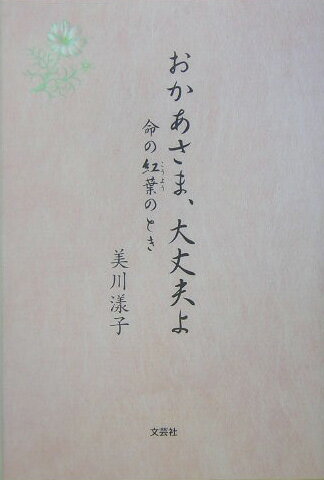 おかあさま、大丈夫よ
命の紅葉のとき
こうよう
美川漾子
文芸社